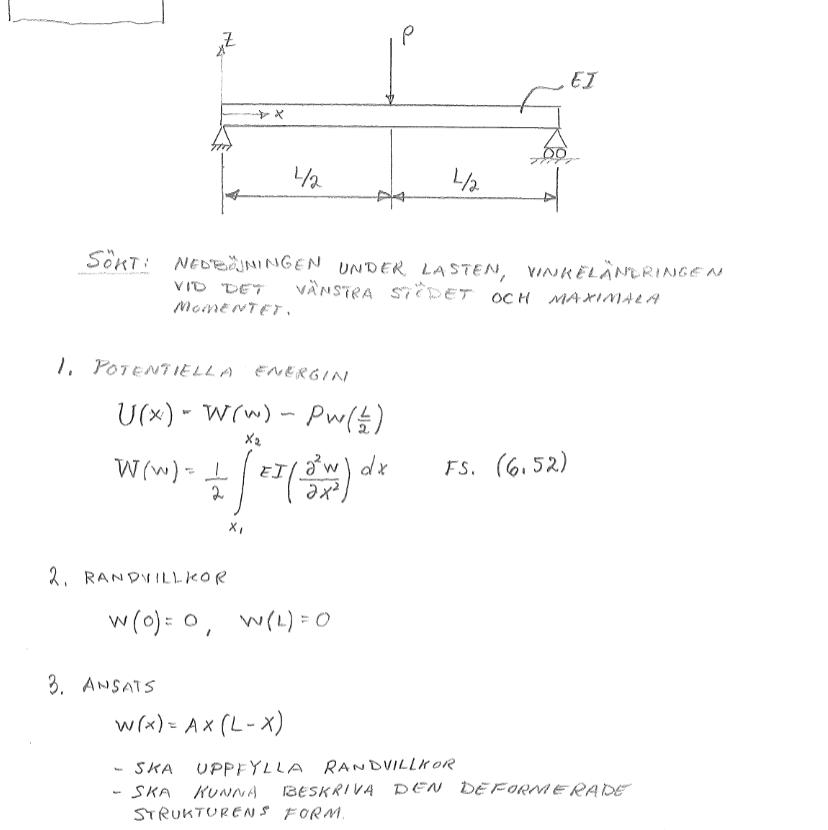 Z
P
EI
x
L/2
L/2
SÖKT: NEDBÖJNINGEN UNDER LASTEN, VINKELÄNDRINGEN
VID DET VÄNSTRA STÖDET OCH MAXIMALA
MOMENTET.
1. POTENTIELLA ENERGIN
U(x) = W(w) - Pw(L/2)
W(w) = 1/2 ∫_{x1}^{x2} EI(∂²w/∂x²) dx FS. (6.52)
2. RANDVILLKOR
W(0) = 0, W(L) = 0
3. ANSATS
W(x) = AX(L-X)
- SKA UPPFYLLA RANDVILLKOR
- SKA KUNNA BESKRIVA DEN DEFORMERADE
STRUKTURENS FORM.